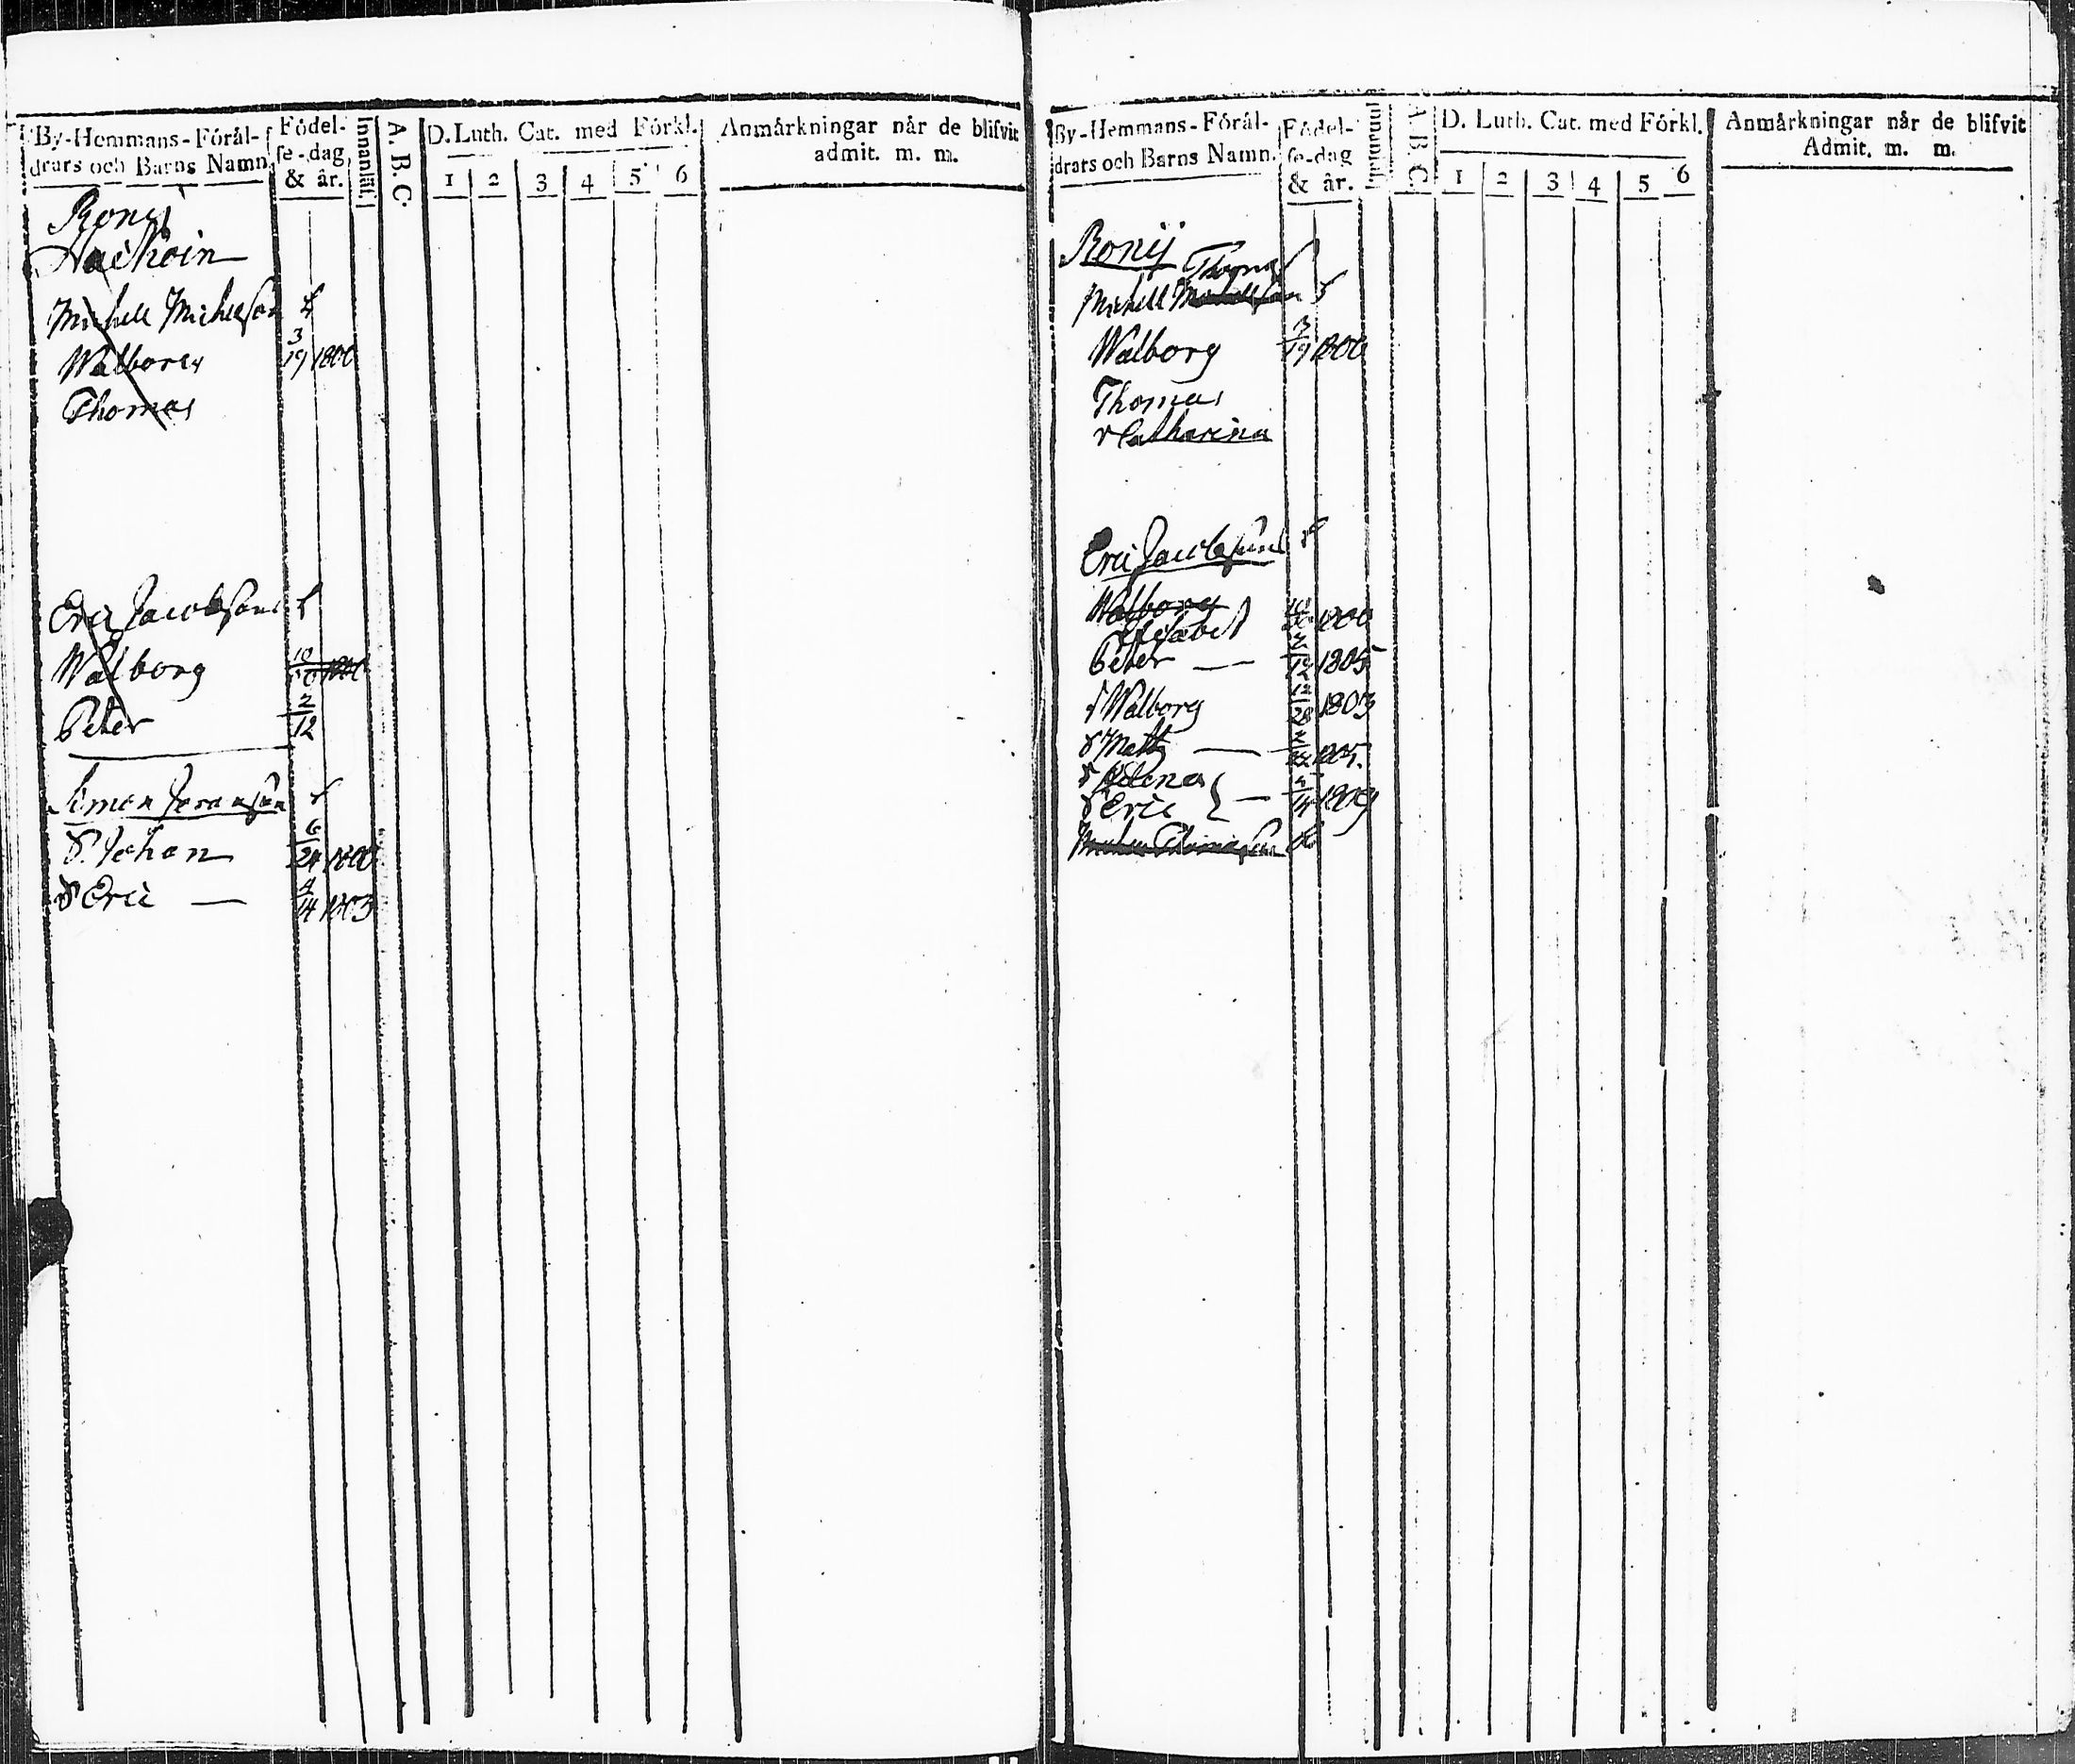 By-Hemmans-Förål-
drars och Barns Namn.
Födel-
se-dag
& år.
Innanläsn.
A. B. C.
D. Luth. Cat. med Förkl.
1 2 3 4 5 6
Anmårkningar når de blifvit
admit. m. m.
Rony
Michell Michelsson
Walborg 3/19 1800
Thomas
Eric Jacobsson
Walborg 10 1800
Peter 2/12
Simon
Johan 6/24 1800
Eric — 4/14 1803
By-Hemmans-Förål-
drars och Barns Namn.
Födel-
se-dag
& år.
A. B. C.
D. Luth. Cat. med Förkl.
1 2 3 4 5 6
Anmårkningar når de blifvit
Admit. m. m.
Ronij
Thomas
Michell
Walborg 3/19 1800
Thomas
Catharina
Eric Jacobsson
Walborg 1800
Elisabet
Peter — 1805
Walborg 28 1803
Matts — 1805.
Helena
Eric — 14 1809